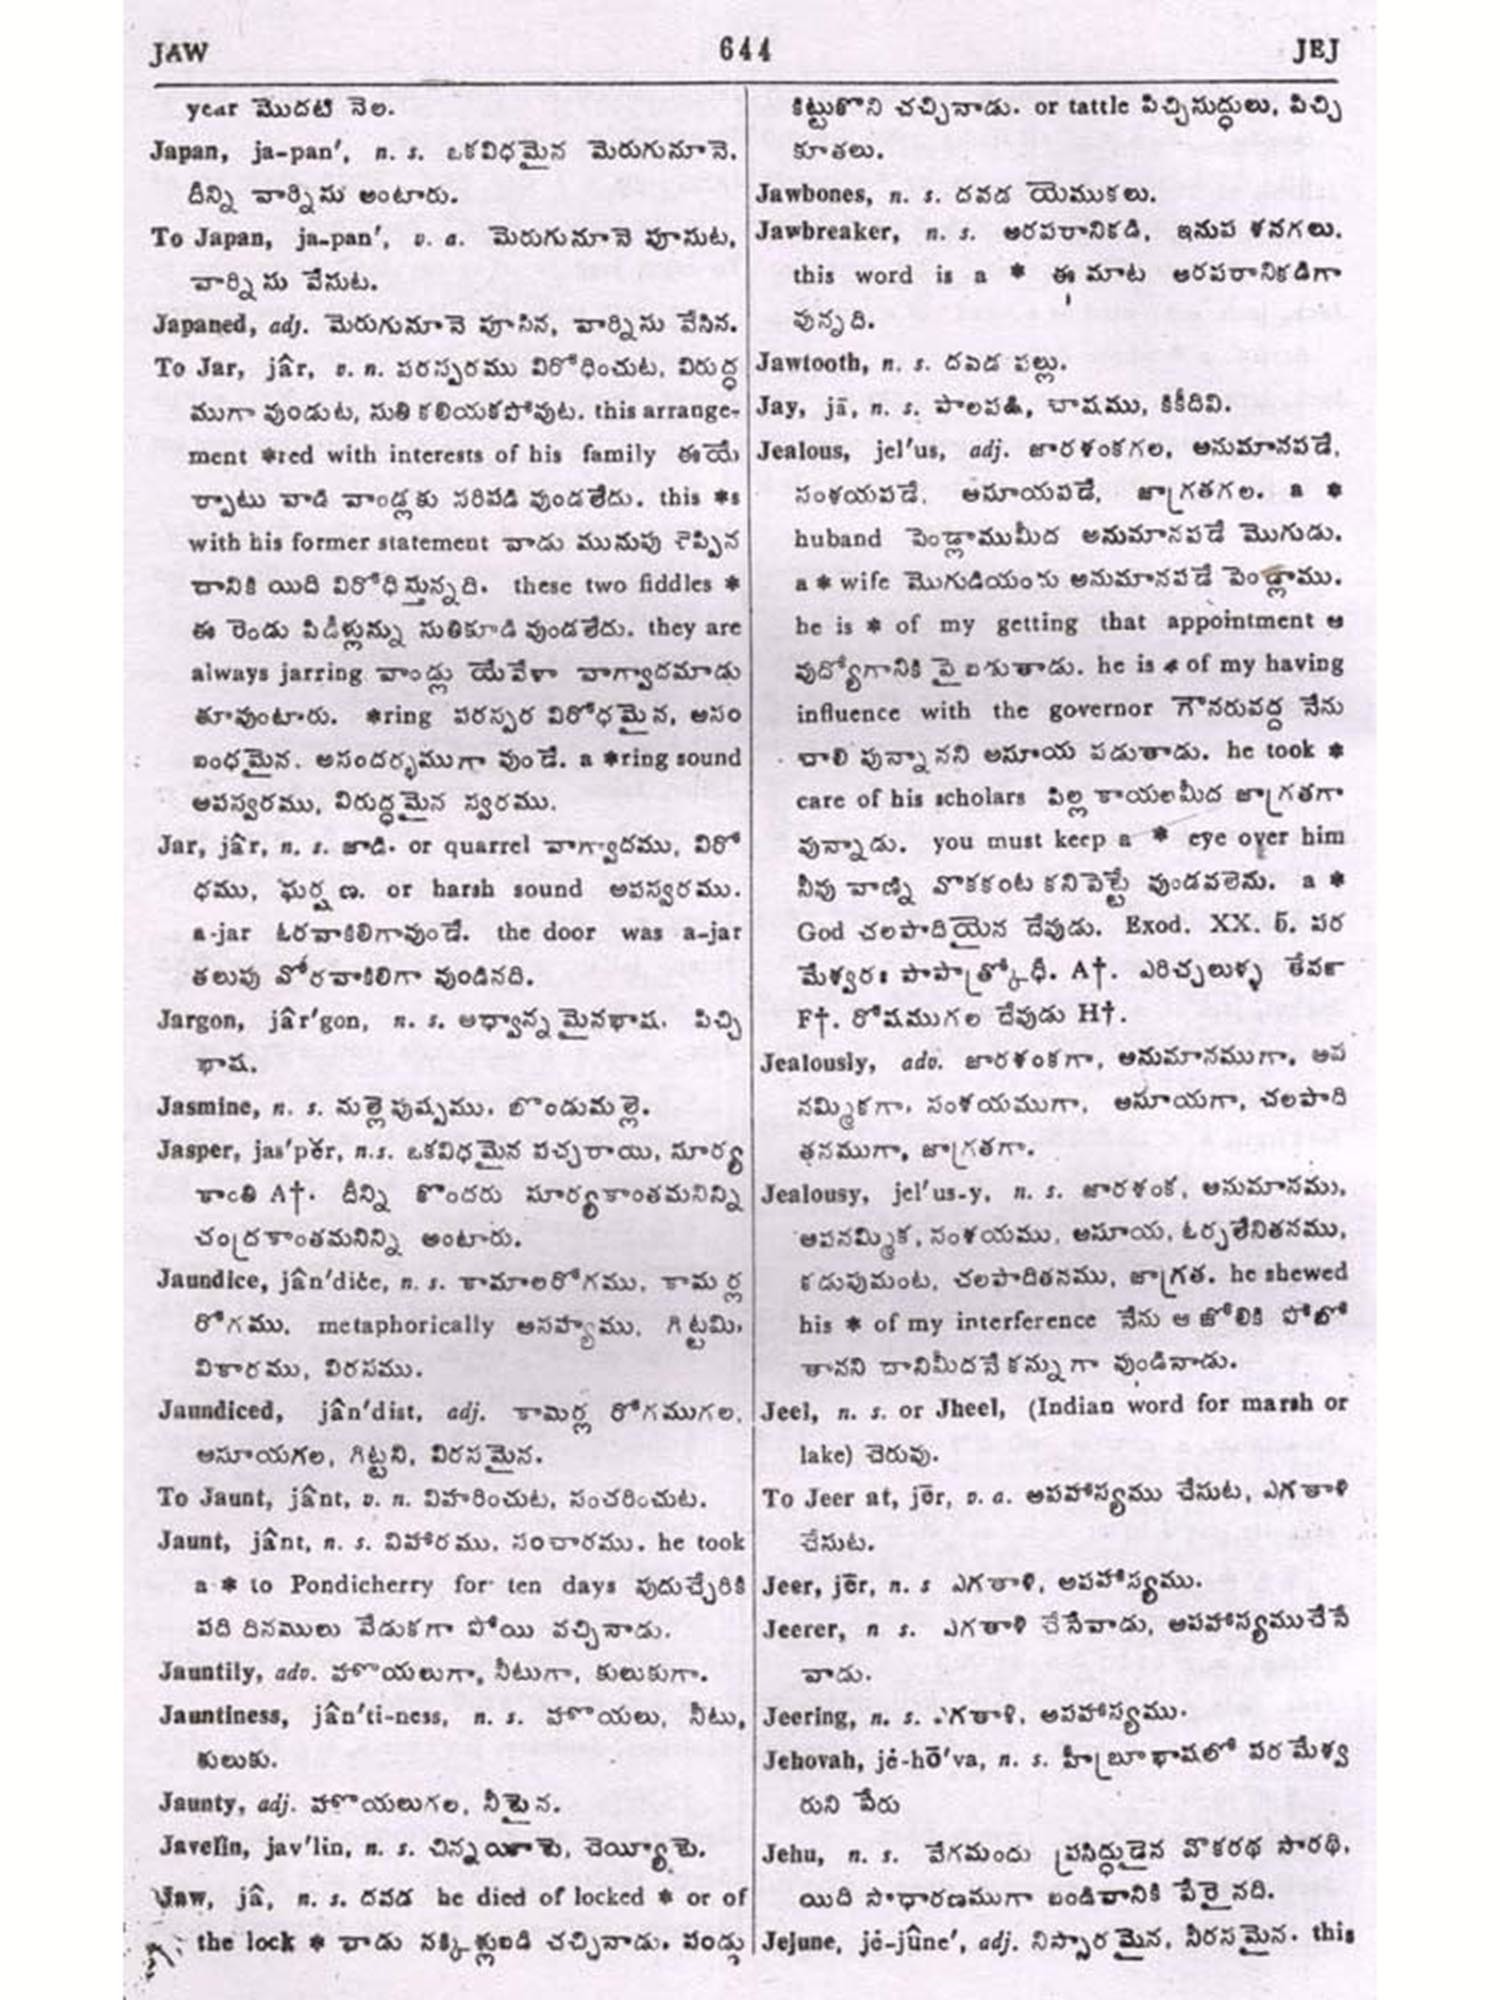 JAW 644 JEJ
year మొదటి నెల.
Japan, ja-pan′, n. s. ఒకవిధమైన మెరుగునూనె.
దీన్ని వార్నిసు అంటారు.
To Japan, ja-pan′, v. a. మెరుగునూనె పూసుట,
వార్నిసు వేసుట.
Japaned, adj. మెరుగునూనె పూసిన, వార్నిసు వేసిన.
To Jar, jâr, v. n. పరస్పరము విరోధించుట, విరుద్ధ
ముగా వుండుట, సుతి కలియకపోవుట. this arrange-
ment *red with interests of his family ఈయే
ర్పాటు వాడి వాండ్లకు సరిపడి వుండలేదు. this *s
with his former statement వాడు మునుపు చెప్పిన
దానికి యిది విరోధిస్తున్నది. these two fiddles *
ఈ రెండు పిడీళ్లున్ను సుతికూడి వుండలేదు. they are
always jarring వాండ్లు యేవేళా వాగ్వాదమాడు
తూవుంటారు. *ring పరస్పర విరోధమైన, అసం
బంధమైన. అసందర్భముగా వుండే. a *ring sound
అపస్వరము, విరుద్ధమైన స్వరము.
Jar, jâr, n. s. జాడి. or quarrel వాగ్వాదము, విరో
ధము, ఘర్షణ. or harsh sound అపస్వరము.
a-jar ఓరవాకిలిగావుండే. the door was a-jar
తలుపు వోరవాకిలిగా వుండినది.
Jargon, jâr′gon, n. s. అధ్వాన్నమైనభాష. పిచ్చి
భాష.
Jasmine, n. s. మల్లెపుష్పము. బొండుమల్లె.
Jasper, jas′pĕr, n.s. ఒకవిధమైన పచ్చరాయి, సూర్య
కాంతి A†. దీన్ని కొందరు సూర్యకాంతమనిన్ని
చంద్రకాంతమనిన్ని అంటారు.
Jaundice, jân′dĭce, n. s. కామాలరోగము, కామర్ల
రోగము. metaphorically అసహ్యము, గిట్టమి,
వికారము, విరసము.
Jaundiced, jân′dist, adj. కామెర్ల రోగముగల,
అసూయగల, గిట్టని, విరసమైన.
To Jaunt, jânt, v. n. విహరించుట, సంచరించుట.
Jaunt, jânt, n. s. విహారము, సంచారము. he took
a * to Pondicherry for ten days పుదుచ్చేరికి
పది దినములు వేడుకగా పోయి వచ్చినాడు.
Jauntily, adv. హొయలుగా, నీటుగా, కులుకుగా.
Jauntiness, jân′ti-ness, n. s. హొయలు, నీటు,
కులుకు.
Jaunty, adj. హొయలుగల, నీటైన.
Javelin, jav′lin, n. s. చిన్నయీటె, చెయ్యీటె.
Jaw, jâ, n. s. దవడ he died of locked * or of
the lock * వాడు నక్కిళ్లుబడి చచ్చినాడు. పండ్లు
కిట్టుకొని చచ్చినాడు. or tattle పిచ్చిసుద్ధులు, పిచ్చి
కూతలు.
Jawbones, n. s. దవడ యెముకలు.
Jawbreaker, n. s. అరపరానికడి, ఇనుప శనగలు.
this word is a * ఈ మాట అరపరానికడిగా
వున్నది.
Jawtooth, n. s. దవడ పల్లు.
Jay, jā, n. s. పాలపక్షి, చాషము, కికీదివి.
Jealous, jel′us, adj. జారశంకగల, అనుమానపడే,
సంశయపడే, అసూయపడే, జాగ్రతగల. a *
huband పెండ్లాముమీద అనుమానపడే మొగుడు.
a * wife మొగుడియందు అనుమానపడే పెండ్లాము.
he is * of my getting that appointment ఆ
వుద్యోగానికి పై బడుతాడు. he is * of my having
influence with the governor గౌనరువద్ద నేను
చాలి వున్నానని అసూయ పడుతాడు. he took *
care of his scholars పిల్లకాయలమీద జాగ్రతగా
వున్నాడు. you must keep a * eye over him
నీవు వాణ్ని వొకకంట కనిపెట్టే వుండవలెను. a *
God చలపాదియైన దేవుడు. Exod. XX. 5. పర
మేశ్వరః పాపాత్క్రోధీ. A†. ఎరిచ్చలుళ్ళ తేవర్
F†. రోషముగల దేవుడు H†.
Jealously, adv. జారశంకగా, అనుమానముగా, అప
నమ్మికగా, సంశయముగా, అసూయగా, చలపాది
తనముగా, జాగ్రతగా.
Jealousy, jel′us-y, n. s. జారశంక, అనుమానము,
అపనమ్మిక, సంశయము, అసూయ, ఓర్పలేనితనము,
కడుపుమంట, చలపాదితనము, జాగ్రత. he shewed
his * of my interference నేను ఆ జోలికి పోబో
తానని దానిమీదనే కన్నుగా వుండినాడు.
Jeel, n. s. or Jheel, (Indian word for marsh or
lake) చెరువు.
To Jeer at, jēr, v. a. అపహాస్యము చేసుట, ఎగతాళి
చేసుట.
Jeer, jēr, n. s ఎగతాళి, అపహాస్యము.
Jeerer, n s. ఎగతాళి చేసేవాడు, అపహాస్యముచేసే
వాడు.
Jeering, n. s. ఎగతాళి, అపహాస్యము.
Jehovah, jĕ-hō′va, n. s. హీబ్రూభాషలో పరమేశ్వ
రుని పేరు
Jehu, n. s. వేగమందు ప్రసిద్ధుడైన వొకరథ సారథి,
యిది సాధారణముగా బండివానికి పేరైనది.
Jejune, jĕ-jûne′, adj. నిస్సారమైన, నీరసమైన. this